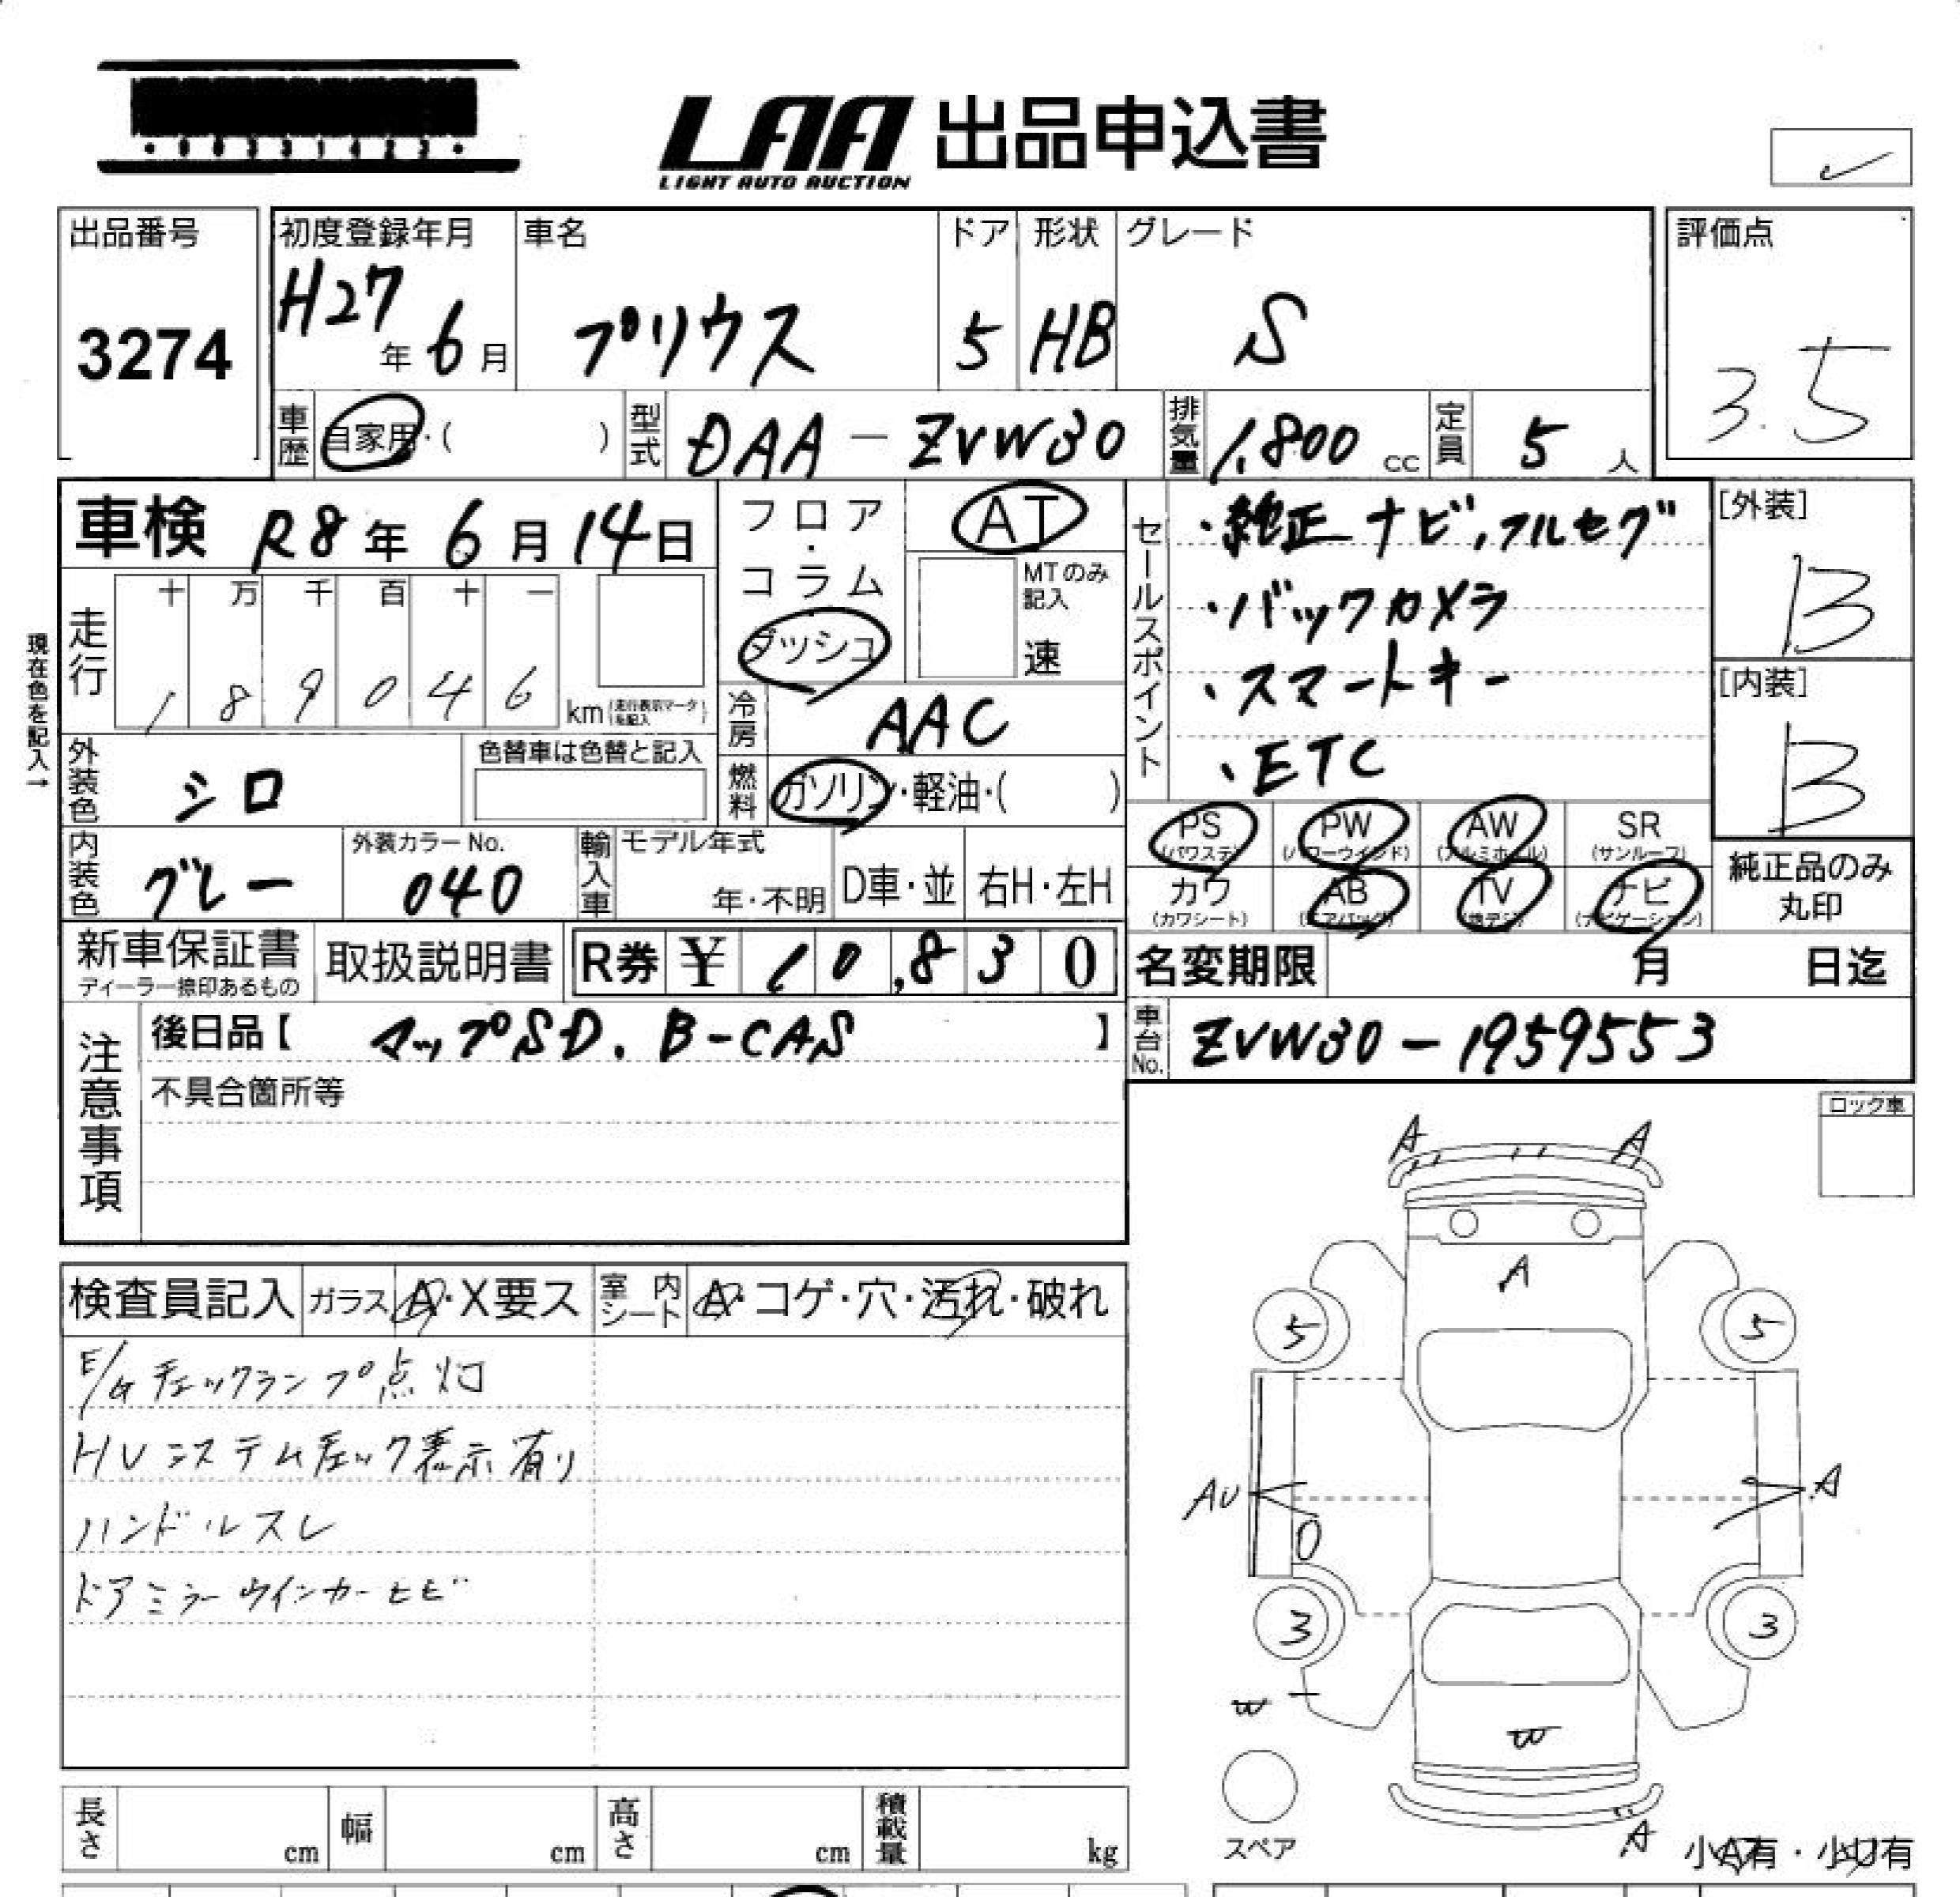 LAA 出品申込書
LIGHT AUTO AUCTION
出品番号
3274
初度登録年月
H27年6月
車名
プリウス
ドア
5
形状
HB
グレード
S
評価点
3.5
車歴
自家用・( )
型式
DAA-ZVW30
排気量
1,800cc
定員
5人
車検 R8年6月14日
フロア・コラム
ダッシュ
AT
MTのみ記入
速
セールスポイント
・純正ナビ,フルセグ
・バックカメラ
・スマートキー
・ETC
[外装]
B
[内装]
B
現在色を記入→
走行
十 万 千 百 十 一
1 8 9 0 4 6 km
(走行表示マークを記入)
冷房
AAC
外装色
シロ
色替車は色替と記入
燃料
ガソリン・軽油・( )
PS
(パワステ)
PW
(パワーウインド)
AW
(アルミホイール)
SR
(サンルーフ)
カワ
(カワシート)
AB
(エアバック)
TV
(地デジ)
ナビ
(ナビゲーション)
純正品のみ
丸印
内装色
グレー
外装カラーNo.
040
輸入車
モデル年式
年・不明
D車・並
右H・左H
新車保証書
ディーラー捺印あるもの
取扱説明書
R券 ¥ 10,830
名変期限 月 日迄
注意事項
後日品【 マップSD. B-CAS 】
不具合箇所等
車台No.
ZVW30-1959553
ロック車
検査員記入
ガラス
A・X要ス
室内シート
A・コゲ・穴・汚れ・破れ
E/Gチェックランプ点灯
HVシステムチェック表示有り
ハンドルスレ
ドアミラーウインカーヒビ
A A
A
5 5
AU A
U
3 3
W
W
スペア
A
小A有・小U有
長さ cm
幅 cm
高さ cm
積載量 kg